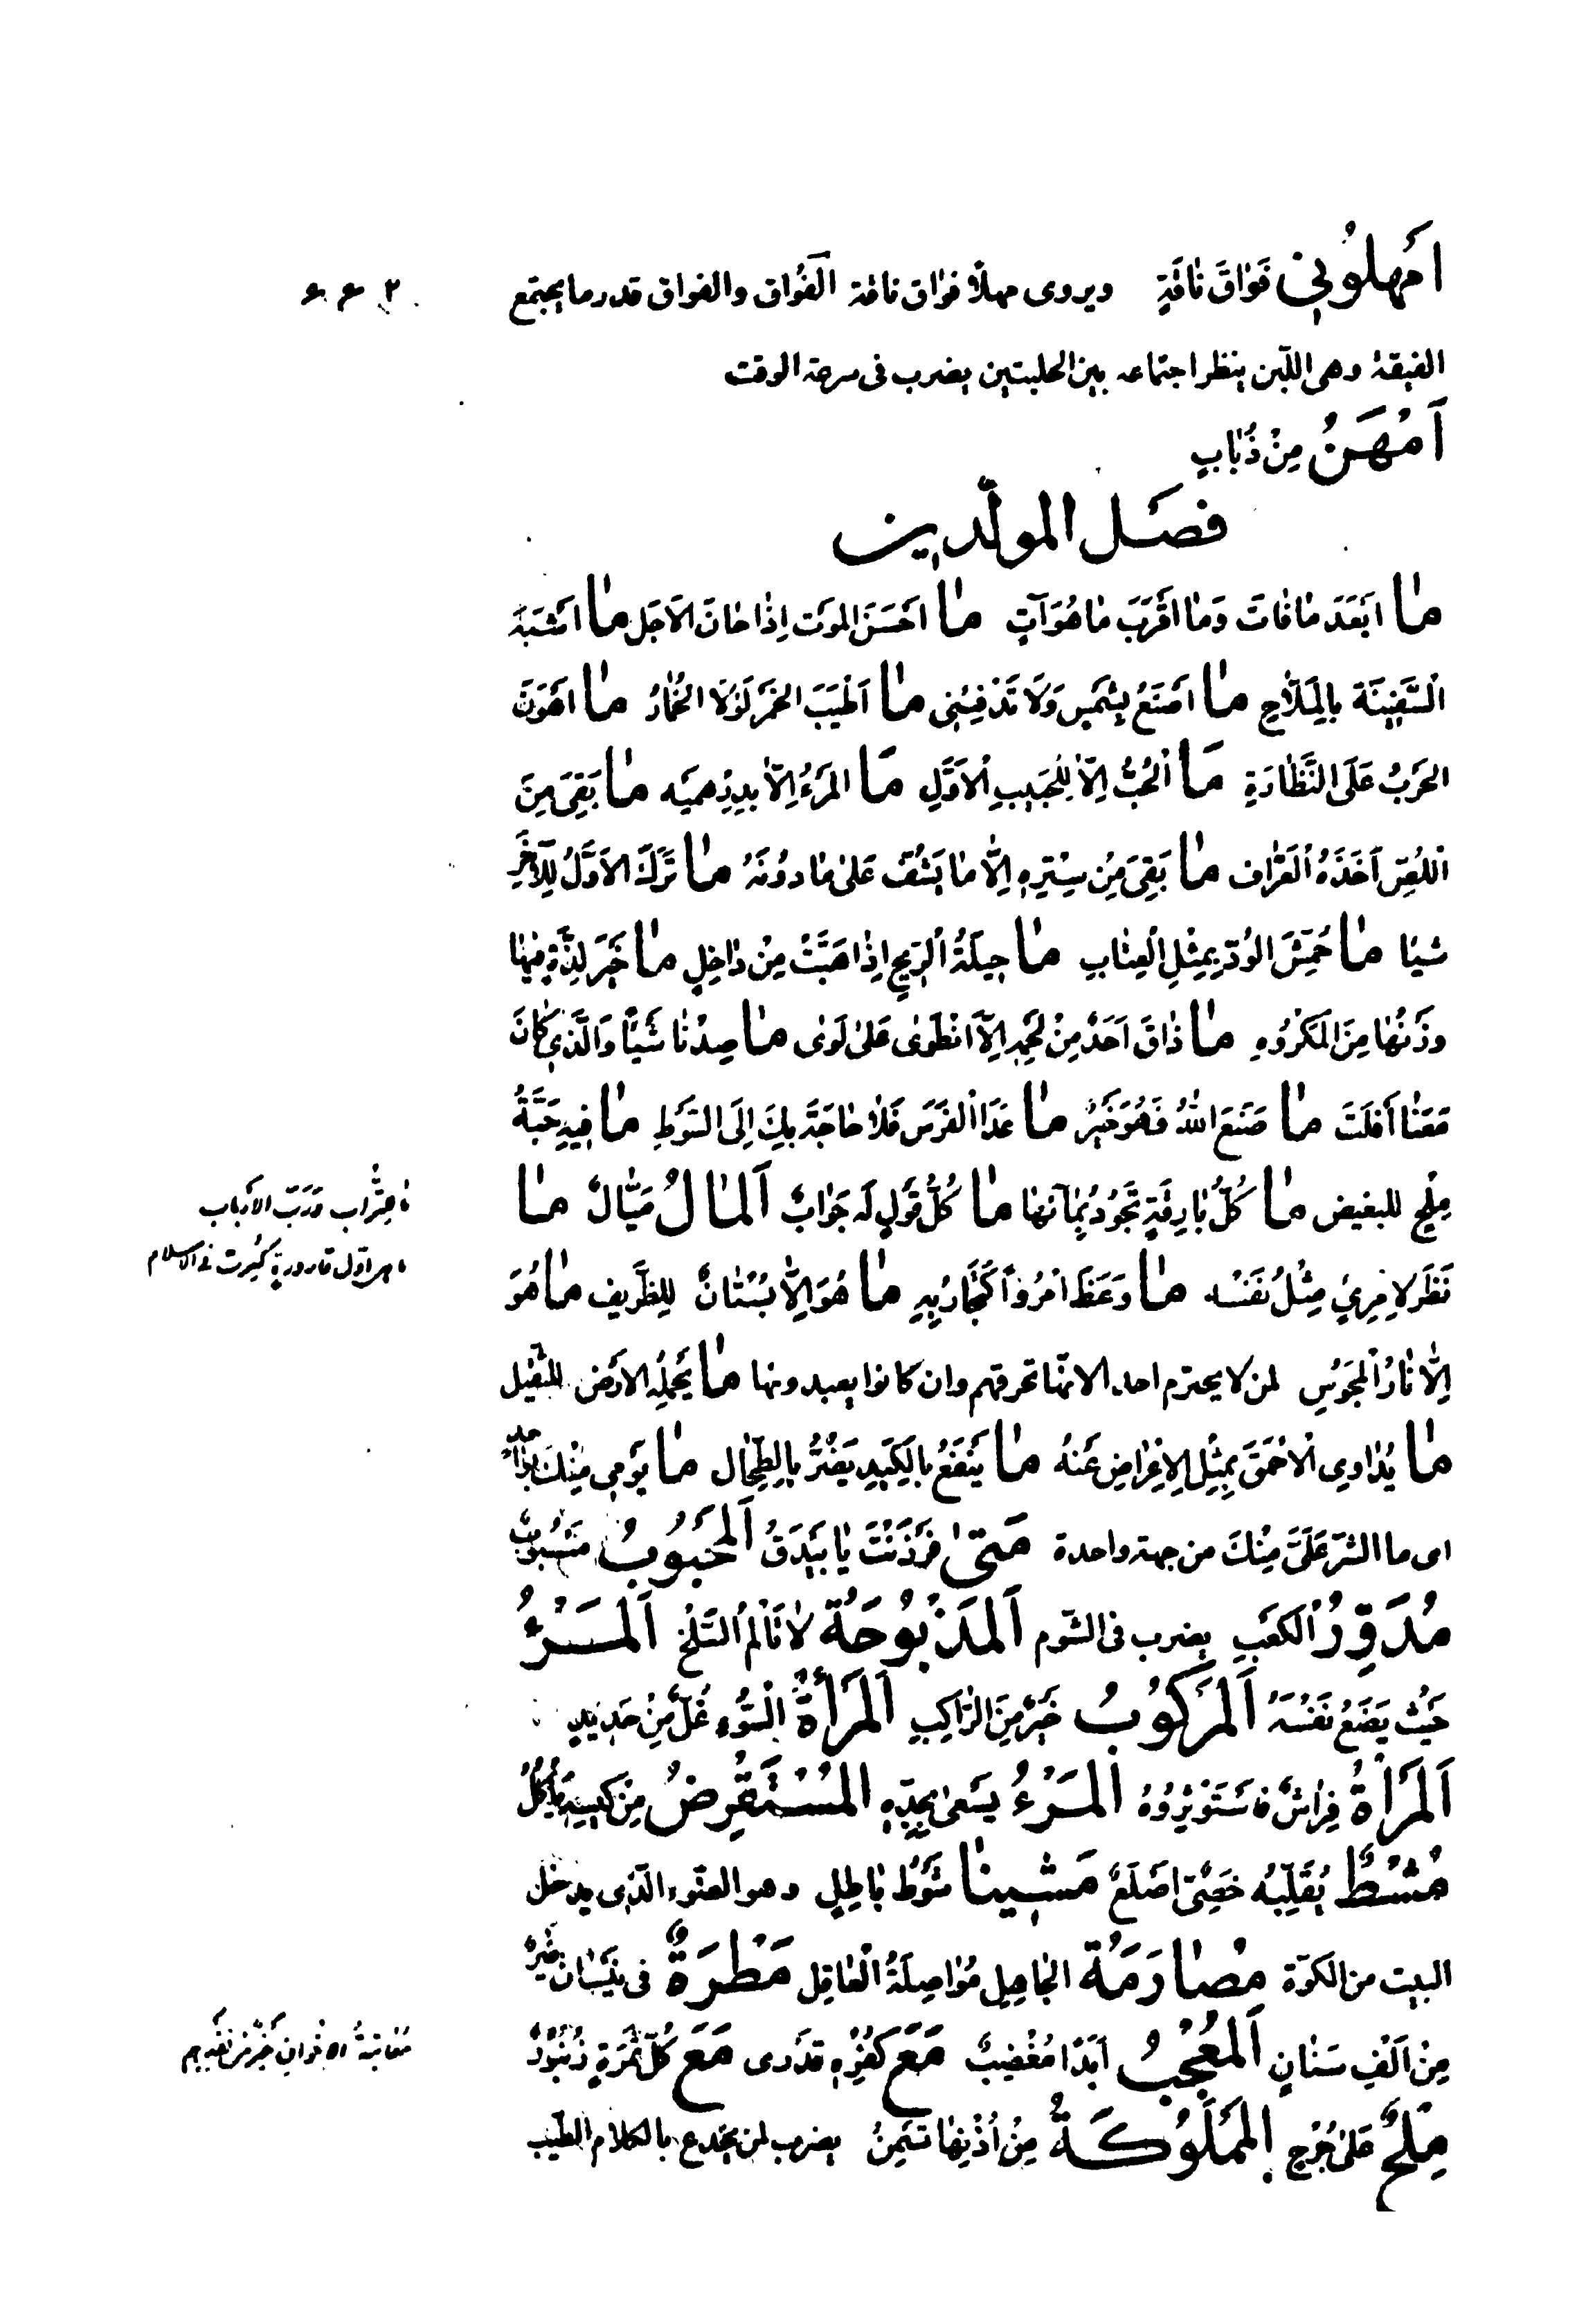 اَمْهِلُونِي فَوٰاقَ نٰاقَةٍ ويروى مهلاً فواق ناقة الفُواق والفواق قدر ما يجتمع
الفيقة وهى اللّبن ينظر اجتماعه بين الحلبتين يضرب فى سرعة الوقت
اَمْهَنُ مِنْ ذُبٰابٍ
فصَل المولّدين
مٰا اَبْعَدَ مٰا فٰاتَ وَمٰا اَقْرَبَ مٰا هُوَ آتٍ مٰا اَحْسَنَ الموَت اِذٰا حٰانَ الاَجَل مٰا اَشْبَهَ
اْلسَّفِينَة بِالمَلّاحِ مٰا اَصْنَعُ بِشَمْسٍ وَلَا تَدْفِينِى مٰا اَطْيَبَ الخمَر لَوْلَا الخُمٰارُ مٰا اَهْوَنَ
الحَرْبُ عَلَى النَّظّٰارَةِ مَا اْلحُبُّ اِلّاٰ لِلْحَبِيبِ اْلاَوَّلِ مَا المَرْءُ اِلّاٰ بِدِرْهَمَيْه مٰا بَقِىَ مِنَ
اْللِّصِّ اَخَذَهُ اْلعَرّٰاف مٰا بَقِىَ مِنْ سِتْرِهِ اِلّٰا مٰا يَشُفّ عَلىٰ مٰا دوُنَهُ مٰا تَرَكَ الاَوَّلُ لِلْآخِرِ
شيئا مٰا خُمِّشَ الوُدّ بِمِثْلِ اْلعِتٰابِ مٰا حِيلَةُ اْلرِّيحِ اِذٰا هَبَّتْ مِنْ دٰاخِلٍ مٰا خَيْرَ لِذَّةٍ فِيهٰا
وَزْنُهٰا مِنَ المَكْرُوُهِ مٰا ذٰاقَ اَحَدٌ مِنْ لَحْمِهِ اِلّاَ انْطَوىٰ عَلىٰ لَوىٰ مٰا صِدْنٰا شَيْئاً وَالَّذِى كٰانَ
مَعَنٰا اَفْلَتَ مٰا صَنَعَ اللهُ فَهُوَ خَيْرٌ مٰا عَدَا اْلفَرَس فَلاٰ حٰاجَةَ بِكَ اِلَى السَّوْطِ مٰا فِيهِ حَبَّةُ
مِلْحٍ للبغيض مٰا كُلُّ بٰارِقَةٍ تَجُوُدُ بِمٰائهٰا مٰا كُلُّ قَوْلٍ لَه جَوٰابٌ اَلمٰالُ مَيّٰالٌ مٰا
نَظَر لاِمْرِئٍ مِثْلُ نَفْسه مٰا وَعَظَ امْرُؤاً كَتَجٰارُبِهِ مٰا هُوَ اِلّٰا بُسْتٰانٌ لِلظَّرِيف مٰا هُوَ
اِلّٰا نٰارُ اْلمَجُوُسِ لمن لا يحترم احد الا نهّا تحرقهم وان كانوا يعبدونها مٰا يَحْمِلُهُ الاَرْض للثّقيل
مٰا يُدٰاوِى الْاَحْمَقَ بِمِثْلِ الاِعْرٰاضِ عَنْهُ مٰا يَنْفَعُ بالكَبِدِ يَضُرُّ بِالطِّحٰال مٰا يَوْمِى مِنْكَ بِوٰاحدٍ
اى ما الشرّ عَلَىَّ مِنْكَ من جهة واحدة مَتىٰ فَرْزَنْتَ يٰا بَيْدَقُ اَلمَحْبُوُبُ مَسْبُوُبٌ
مُدَوَّرُ اْلكَعْبِ يضرب فى الشّوم اَلمَذْبُوُحَةُ لاٰ تَأْلَمُ السَّلْخ اَلمَرْءُ
حَيْثُ يَضَعُ نَفْسَهُ اَلمَرْكُوُبُ خَيْرٌ مِنَ الرّٰاكِبِ اَلمَرْأَةُ السُّوُءِ غُلٌّ مِنْ حَدِيدٍ
اَلمَرْأَةُ فِرٰاشٌ فَاسْتَوْثِرُوُهُ المَرْءُ يَسْعىٰ بِجِدِّهِ المُسْتَقْرِضُ مِنْ كِيسِهِ يَأْكُلُ
مُشْطٌ يُقَلِّبُهُ خَصِىٌّ اَصْلَعُ مَشَيْنٰا شَوْطَ بٰاطِلٍ وهو الضّوء الّذى يدخل
البيت من الكوّة مُصٰارَمَةُ الجٰاهِلِ مُوٰاصِلَةُ الْعٰاقِل مَطْرَةٌ فى نَيْسٰان خَيْرٌ
مِنْ اَلْفِ سَنٰانٍ اَلمُعْجُبُ اَبَدًا مُغْضِبٌ مَعَ كُفْرِهِ قدَرى مَعَ كُلِّ ثَمْرَةٍ زُنْبُوُرٌ
مِلْحٌ عَلىٰ جُرْحٍ اَلمَمْلُوُكَةُ مِنْ اُذْنِهٰا تسَمَنُ يضرب لمن يخدع بالكلام الطّيب
مٰا لِلتُّراب وَرَبّ الاَرباب
ما هى اوّل قارورةٍ كُسِرت فى الاسلام
مُعاتبةُ الاخْوانِ خَيْرٌ مِن فَقْدِهِم